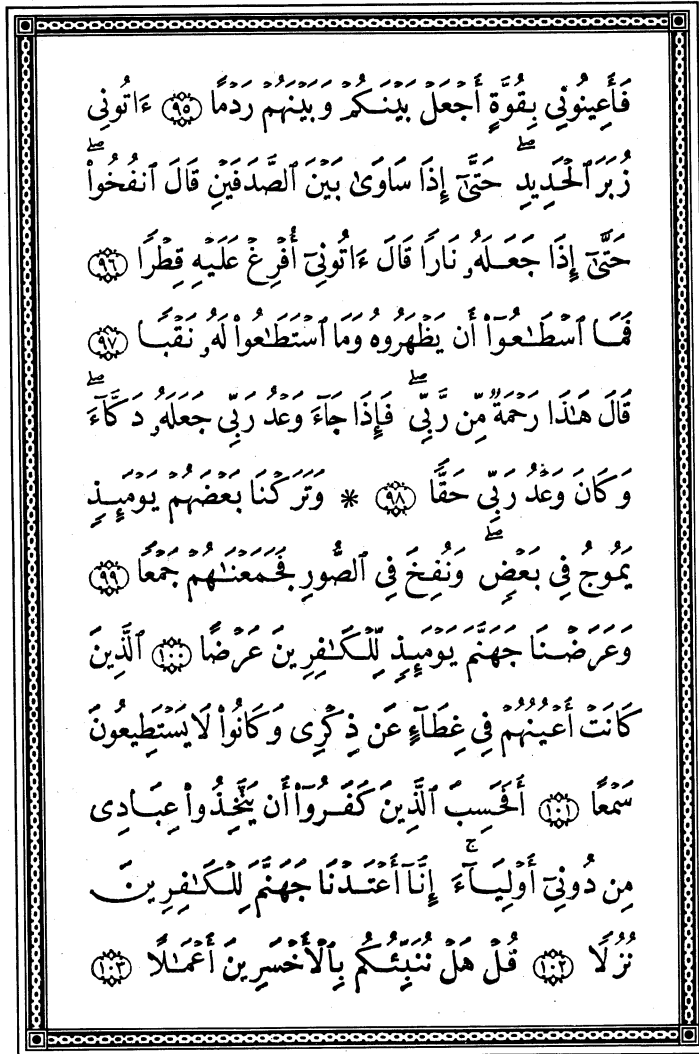 فَأَعِينُونِي بِقُوَّةٍ أَجْعَلْ بَيْنَكُمْ وَبَيْنَهُمْ رَدْمًا ۝٩٥ ءَاتُونِي
زُبَرَ ٱلْحَدِيدِۖ حَتَّىٰٓ إِذَا سَاوَىٰ بَيْنَ ٱلصَّدَفَيْنِ قَالَ ٱنفُخُوا۟ۖ
حَتَّىٰٓ إِذَا جَعَلَهُۥ نَارًا قَالَ ءَاتُونِىٓ أُفْرِغْ عَلَيْهِ قِطْرًا ۝٩٦
فَمَا ٱسْطَـٰعُوٓا۟ أَن يَظْهَرُوهُ وَمَا ٱسْتَطَـٰعُوا۟ لَهُۥ نَقْبًا ۝٩٧
قَالَ هَـٰذَا رَحْمَةٌ مِّن رَّبِّىۖ فَإِذَا جَآءَ وَعْدُ رَبِّى جَعَلَهُۥ دَكَّآءَۖ
وَكَانَ وَعْدُ رَبِّى حَقًّا ۝٩٨ * وَتَرَكْنَا بَعْضَهُمْ يَوْمَئِذٍ
يَمُوجُ فِى بَعْضٍۖ وَنُفِخَ فِى ٱلصُّورِ فَجَمَعْنَـٰهُمْ جَمْعًا ۝٩٩
وَعَرَضْنَا جَهَنَّمَ يَوْمَئِذٍ لِّلْكَـٰفِرِينَ عَرْضًا ۝١٠٠ ٱلَّذِينَ
كَانَتْ أَعْيُنُهُمْ فِى غِطَآءٍ عَن ذِكْرِى وَكَانُوا۟ لَا يَسْتَطِيعُونَ
سَمْعًا ۝١٠١ أَفَحَسِبَ ٱلَّذِينَ كَفَرُوٓا۟ أَن يَتَّخِذُوا۟ عِبَادِى
مِن دُونِىٓ أَوْلِيَآءَۚ إِنَّآ أَعْتَدْنَا جَهَنَّمَ لِلْكَـٰفِرِينَ
نُزُلًا ۝١٠٢ قُلْ هَلْ نُنَبِّئُكُم بِٱلْأَخْسَرِينَ أَعْمَـٰلًا ۝١٠٣